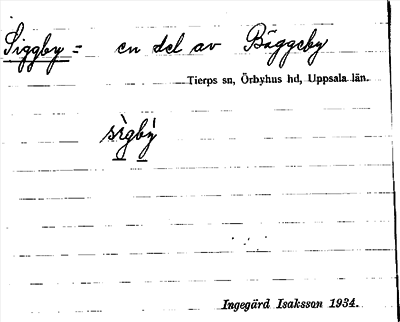 Siggby = en del av Bäggeby
Tierps sn, Örbyhus hd, Uppsala län.
sìgbý
Ingegärd Isaksson 1934.